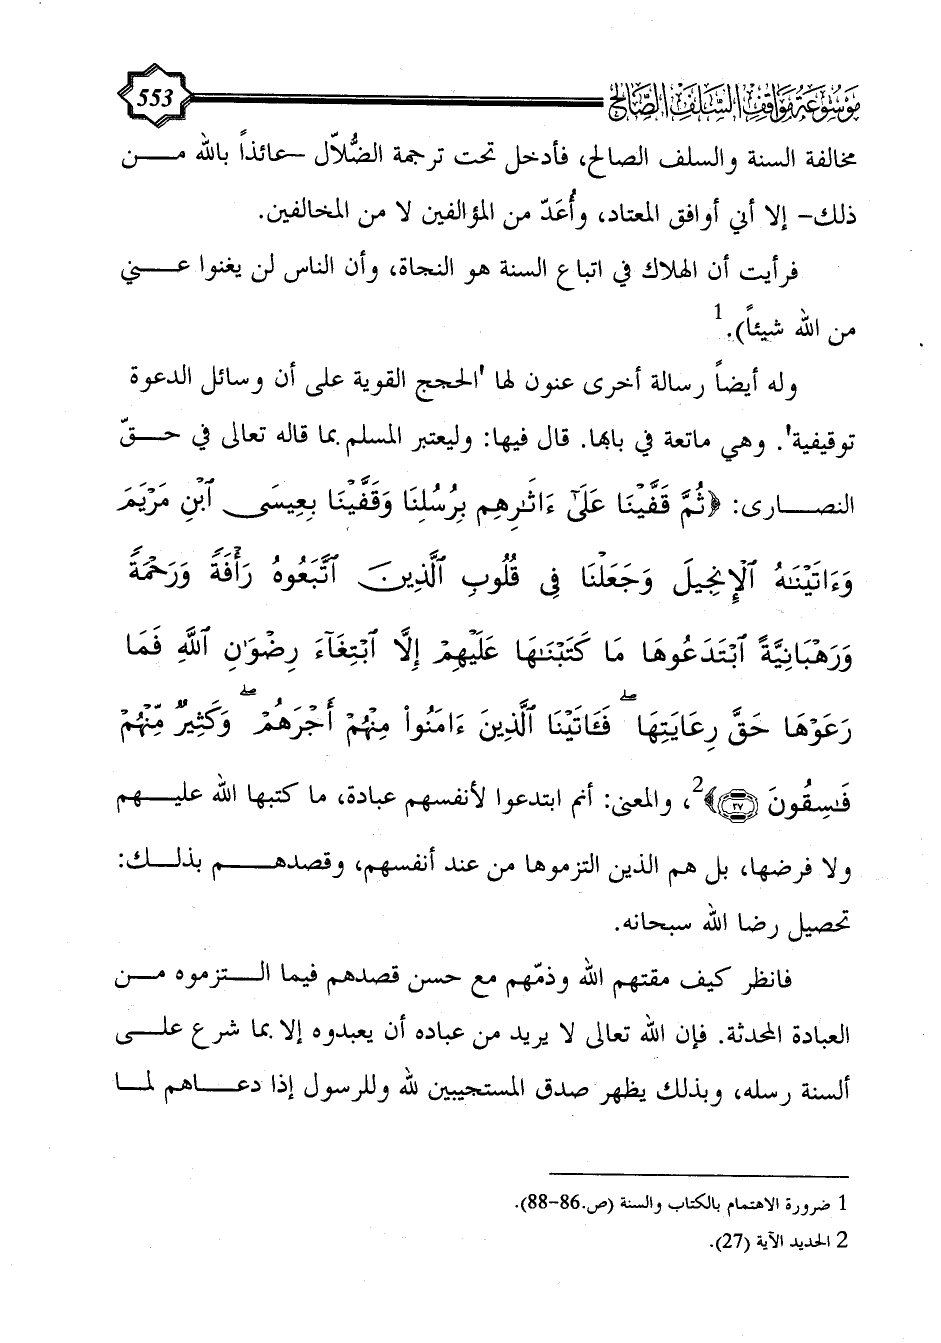 موسوعة مواقف السلف الصالح
553
مخالفة السنة والسلف الصالح، فأدخل تحت ترجمة الضُّلاّل –عائذاً بالله مـــن
ذلك– إلا أني أوافق المعتاد، وأُعَدّ من المؤالفين لا من المخالفين.
فرأيت أن الهلاك في اتباع السنة هو النجاة، وأن الناس لن يغنوا عـــني
من الله شيئاً).1
وله أيضاً رسالة أخرى عنون لها 'الحجج القوية على أن وسائل الدعوة
توقيفية'. وهي ماتعة في بابها. قال فيها: وليعتبر المسلم بما قاله تعالى في حـــقّ
النصـــارى: ﴿ثُمَّ قَفَّيْنَا عَلَىٰٓ ءَاثَٰرِهِم بِرُسُلِنَا وَقَفَّيْنَا بِعِيسَى ٱبْنِ مَرْيَمَ
وَءَاتَيْنَٰهُ ٱلْإِنجِيلَ وَجَعَلْنَا فِى قُلُوبِ ٱلَّذِينَ ٱتَّبَعُوهُ رَأْفَةً وَرَحْمَةً
وَرَهْبَانِيَّةً ٱبْتَدَعُوهَا مَا كَتَبْنَٰهَا عَلَيْهِمْ إِلَّا ٱبْتِغَآءَ رِضْوَٰنِ ٱللَّهِ فَمَا
رَعَوْهَا حَقَّ رِعَايَتِهَا ۖ فَـَٔاتَيْنَا ٱلَّذِينَ ءَامَنُوا۟ مِنْهُمْ أَجْرَهُمْ ۖ وَكَثِيرٌ مِّنْهُمْ
فَٰسِقُونَ ٢٧﴾2، والمعنى: أنهم ابتدعوا لأنفسهم عبادة، ما كتبها الله عليـــهم
ولا فرضها، بل هم الذين التزموها من عند أنفسهم، وقصدهـــم بذلـــك:
تحصيل رضا الله سبحانه.
فانظر كيف مقتهم الله وذمّهم مع حسن قصدهم فيما الـــتزموه مـــن
العبادة المحدثة. فإن الله تعالى لا يريد من عباده أن يعبدوه إلا بما شرع علـــى
ألسنة رسله، وبذلك يظهر صدق المستجيبين لله وللرسول إذا دعـــاهم لمـــا
1 ضرورة الاهتمام بالكتاب والسنة (ص.86–88).
2 الحديد الآية (27).